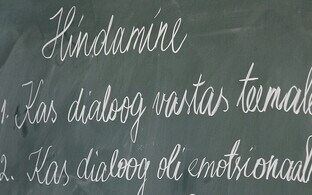 Hindamine
1. Kas dialoog vastas teemale
2. Kas dialoog oli emotsionaal